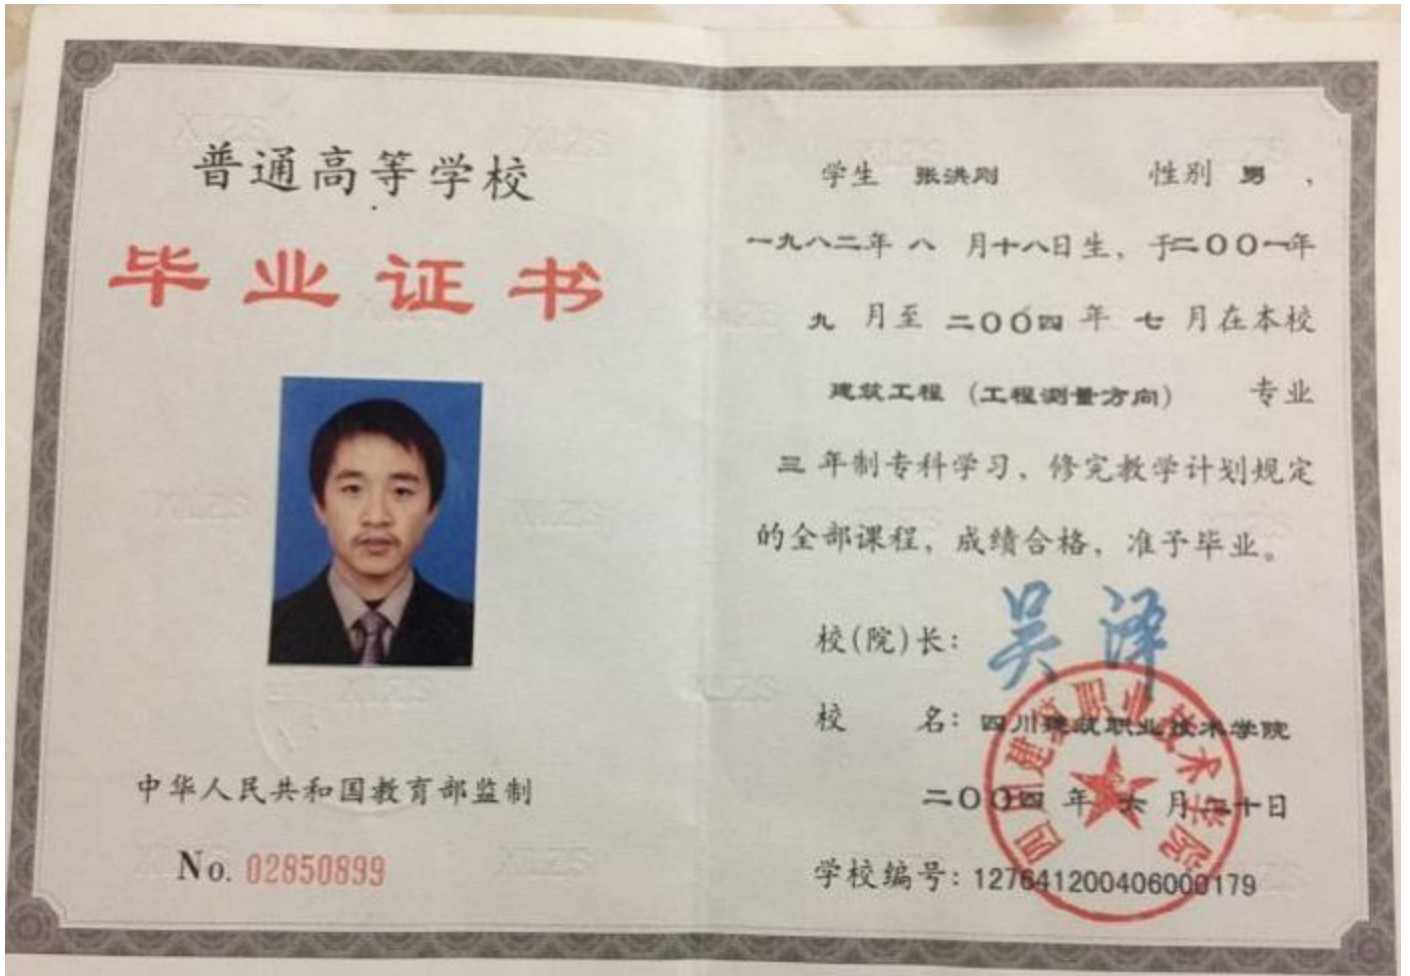 普通高等学校
毕业证书
中华人民共和国教育部监制
No. 02850899
学生 张洪刚 性别 男 ，
一九八二年 八 月十八日生，于二〇〇一年
九 月至 二〇〇四 年 七 月在本校
建筑工程 (工程测量方向) 专业
三 年制专科学习，修完教学计划规定
的全部课程，成绩合格，准予毕业。
校(院)长： 吴泽
校 名：四川建筑职业技术学院
二〇〇四 年 六 月二十日
学校编号：127641200406000179
四川建筑职业技术学院